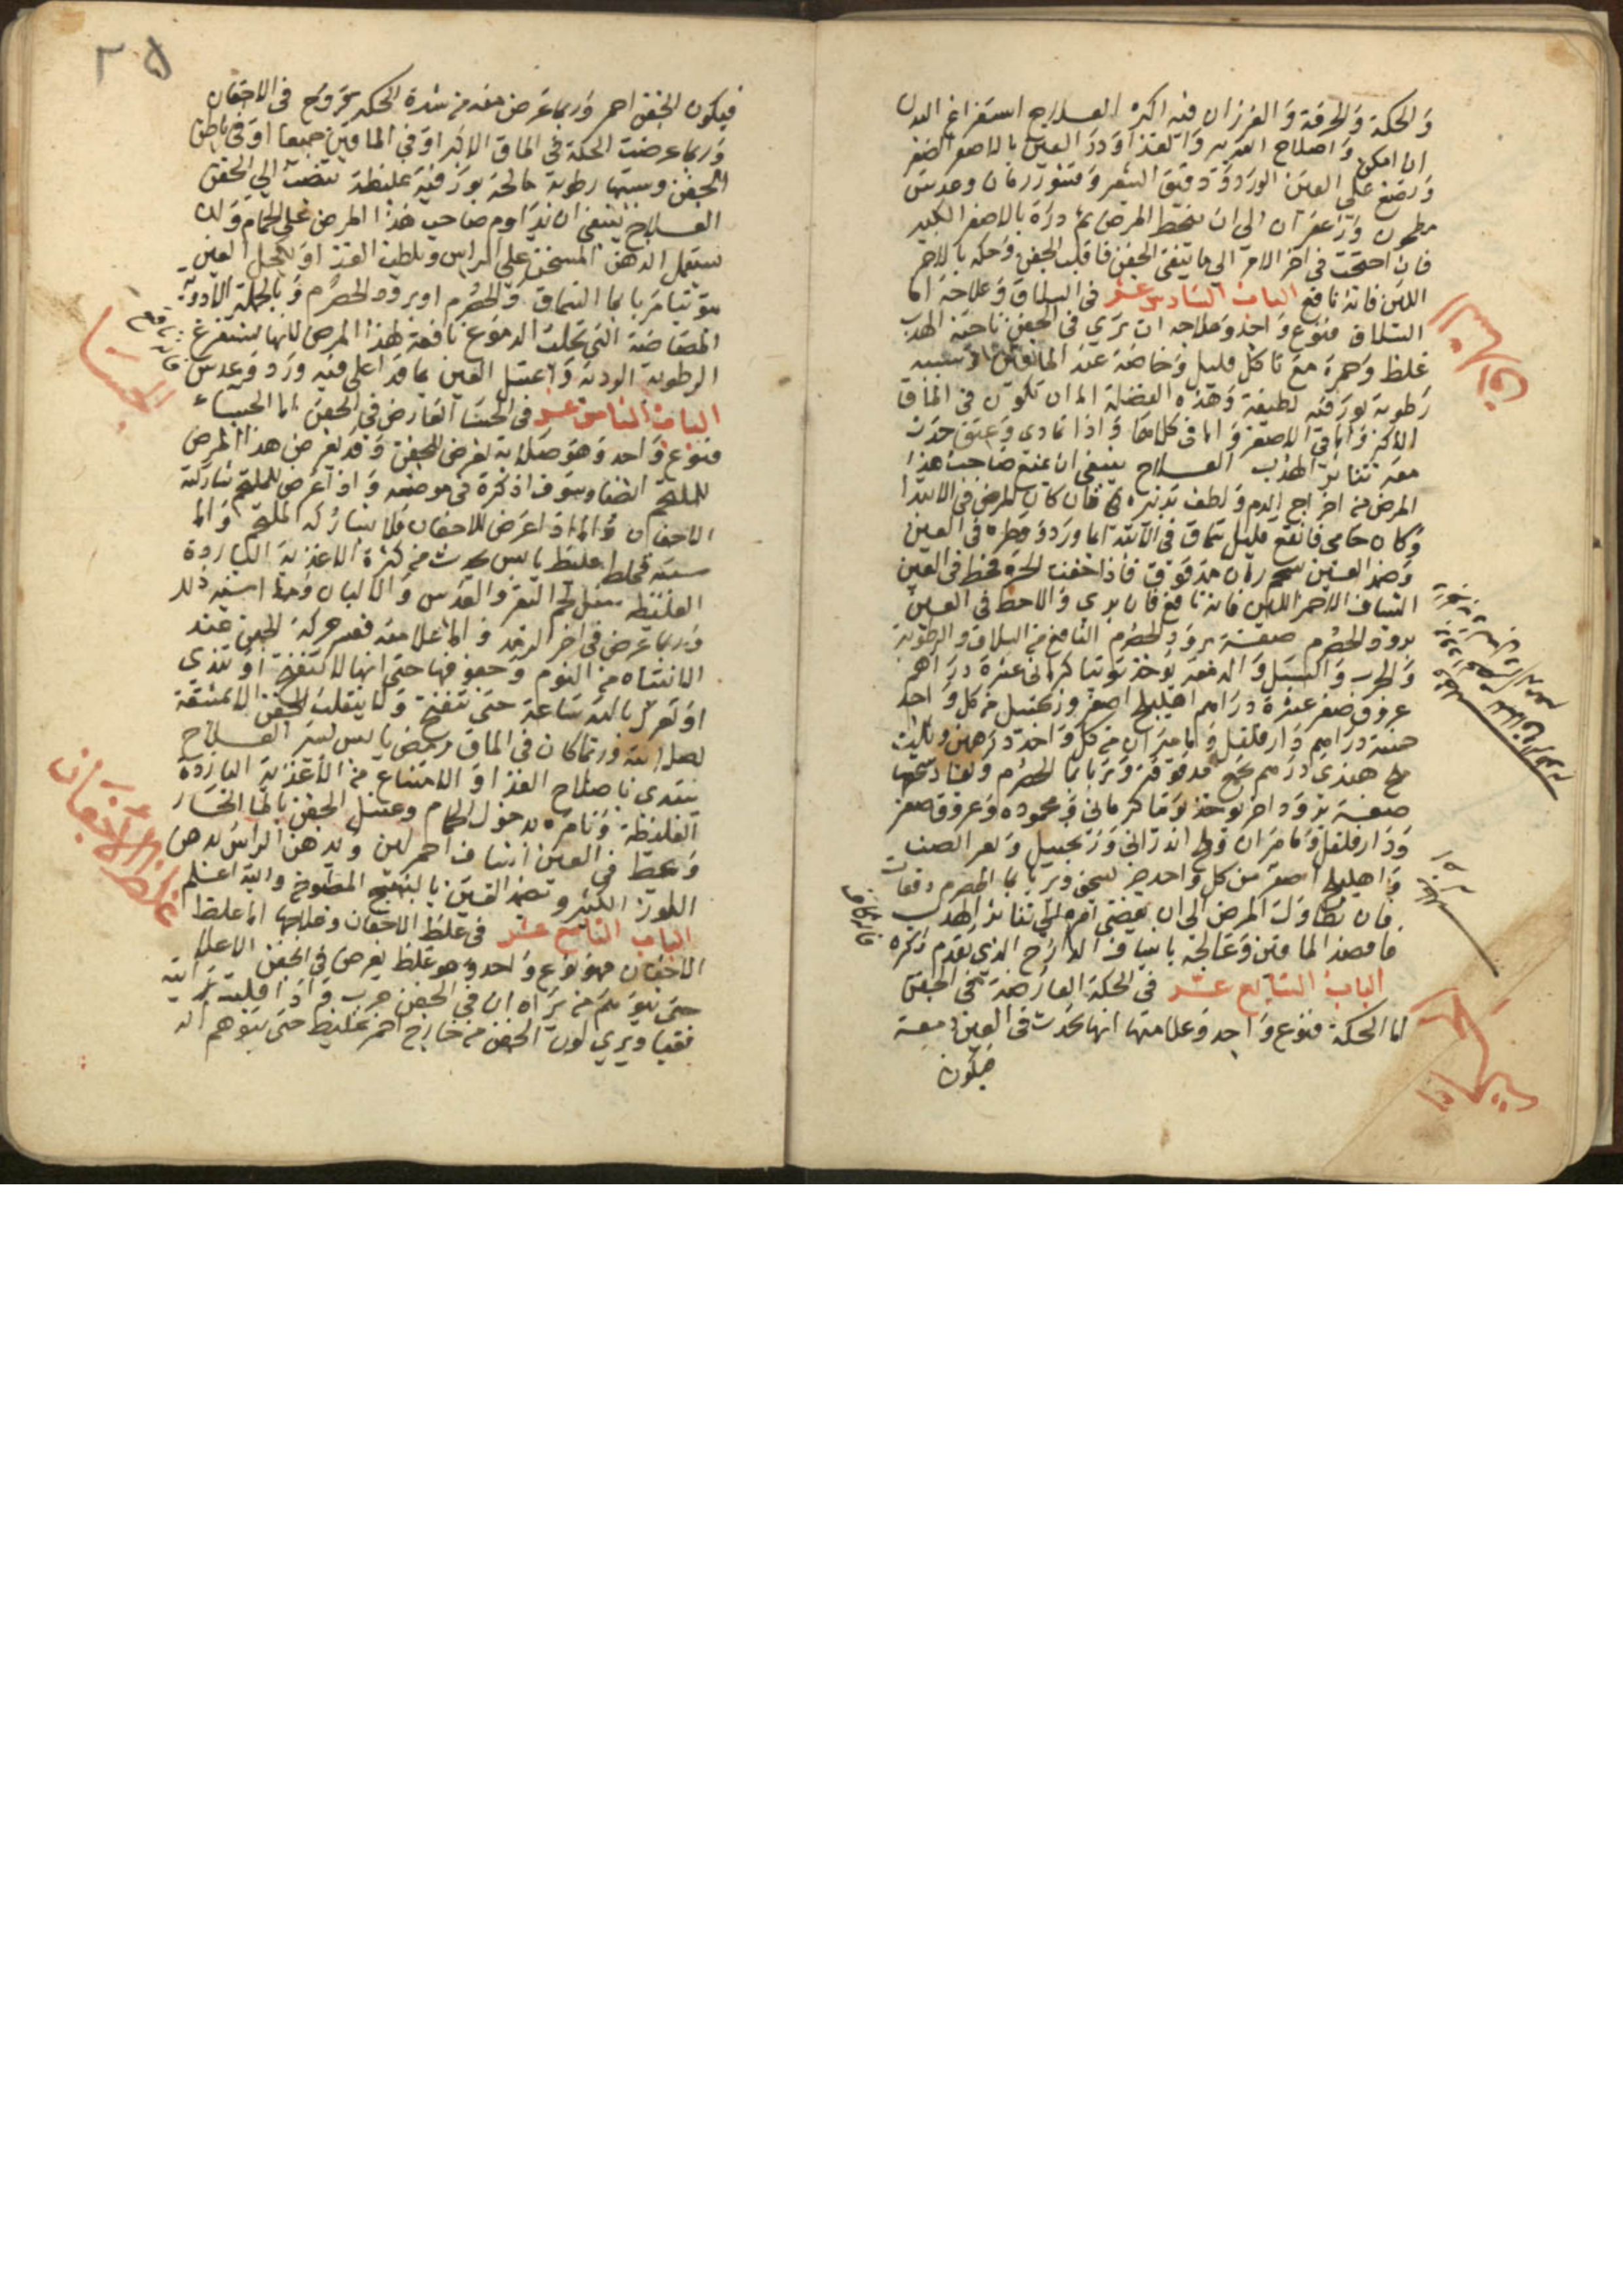 والحكة والحرقة والغرزان فيه اكثر العلاج استفراغ البدن
ان امكن واصلاح التدبير والغذا وذر العين بالاصفر الصغير
وتضع على العين الورد ودقيق الشعير وقشور رمان وعدس
مطحون وزعفران الى ان ينحط المرض ثم ذره بالاصفر الكبير
فان احتجت في اخر الامر الى ما ينقي الجفن فاقلب الجفن وحكه بالاحمر
اللين فانه نافع الباب السادس عشر في السلاق وعلاجه اما
السلاق فنوع واحد وعلامته ان ترى في الجفن ناحية الهدب
غلظ وحمرة مع تاكل قليل وخاصة عند الماقين وسببه
رطوبة بورقية لطيفة وهذه الفضلة اما ان تكون في الماق
الاكبر واما في الاصغر واما في كلاهما واذا تمادى وعتق حدث
معه تناثر الهدب العلاج ينبغي ان يمنع صاحب هذا
المرض من اخراج الدم ولطف تدبيره فان كان المرض في الابتدا
وكان حامي فانقع قليل سماق في ماورد وقطره في العين
وضمد العين مدقوق فاذا خفت الحمرة فحط في العين
الشياف الاحمر اللين فانه نافع فان برئ والا حط في العين
برود الحصرم صفة برود الحصرم النافع من السلاق والرطوبة
والجرب والسبل والدمعة يوخذ توتيا كرماني عشرة دراهم
عروق صفر عشرة دراهم اهليلج اصفر وزنجبيل من كل واحد
خمسة دراهم دارفلفل وماميران من كل واحد درهمين وثلث
ملح هندي درهم تجمع مدقوقة وتربا بما الحصرم ويعاد سحقها
صفة برود اخر يوخذ توتيا كرماني ومحموده وعروق صفر
ودارفلفل وماميران وملح اندراني وزنجبيل
واهليلج اصفر من كل واحد جز يسحق ويربا بما الحصرم دفعات
فان تطاول المرض الى ان يفضي امره الى تناثر الهدب
فافصد الماقين وعالجه باشياف الدارج الذي تقدم ذكره
الباب السابع عشر في الحكة العارضة في الجفن
اما الحكة فنوع واحد وعلامتها انها تحدث في العين دمعة
فيكون
٢٥
فيكون الجفن احمر وربما عرض معه من شدة الحكة قروح في الاجفان
وربما عرضت الحكة في الماق الاكبر او في الماقين جميعا او في باطن
الجفن وسببها رطوبة مالحة بورقية غليظة تنصب الى الجفن
العلاج ينبغي ان يداوم صاحب هذا المرض على الحمام ولان
يستعمل الدهن المسخن على الراس ويلطف الغذا ويكحل العين
بتوتيا مربا بما السماق والحصرم او برود الحصرم وبالجملة الادوية
الحادة التي تجلب الدموع نافعة لهذا المرض لانها تستفرغ
الرطوبة الردية واغسل العين بما قد اغلي فيه ورد وعدس
الباب الثامن عشر في الجسا العارض في الجفن اما الجساء
فنوع واحد وهو صلابة تعرض للجفن وقد يعرض هذا المرض
للملتحم ايضا وسوف اذكره في موضعه واذا عرض للملتحم شاركته
الاجفان واما اذا عرض للاجفان فلا يشاركه الملتحم واما
سببه فخلط غليظ يابس يحدث من كثرة الاغذية الباردة
الغليظة مثل لحم البقر والعدس والالبان وما اشبه ذلك
وربما عرض في اخر الرمد واما علامته فعسر حركة الجفن عند
الانتباه من النوم وجفوفها حتى انها لا تنفتح او تندى
او تعرك باليد ساعة حتى تنفتح ولا ينقلب الجفن الا بمشقة
لصلابته وربما كان في الماق رمص يابس يسير العلاج
يبتدى باصلاح الغذا والامتناع من الاغذية الباردة
الغليظة وتامره بدخول الحمام وغسل الجفن بالما الحار
وتحط في العين اشياف احمر لين وتدهن الراس بدهن
اللوز الكثير وتضمد العين بالبنفسج المطبوخ والله اعلم
الباب التاسع عشر في غلظ الاجفان وعلاجها اما غلظ
الاجفان فهو نوع واحد وهو غلظ يعرض في الجفن الاعلا
حتى يتوهم من يراه ان في الجفن جرب واذا اقلبته رايته
نقيا ويرى لون الجفن من خارج احمر غليظ حتى يتوهم انه
الجسا
غلظ الاجفان
السلاق
الحكة